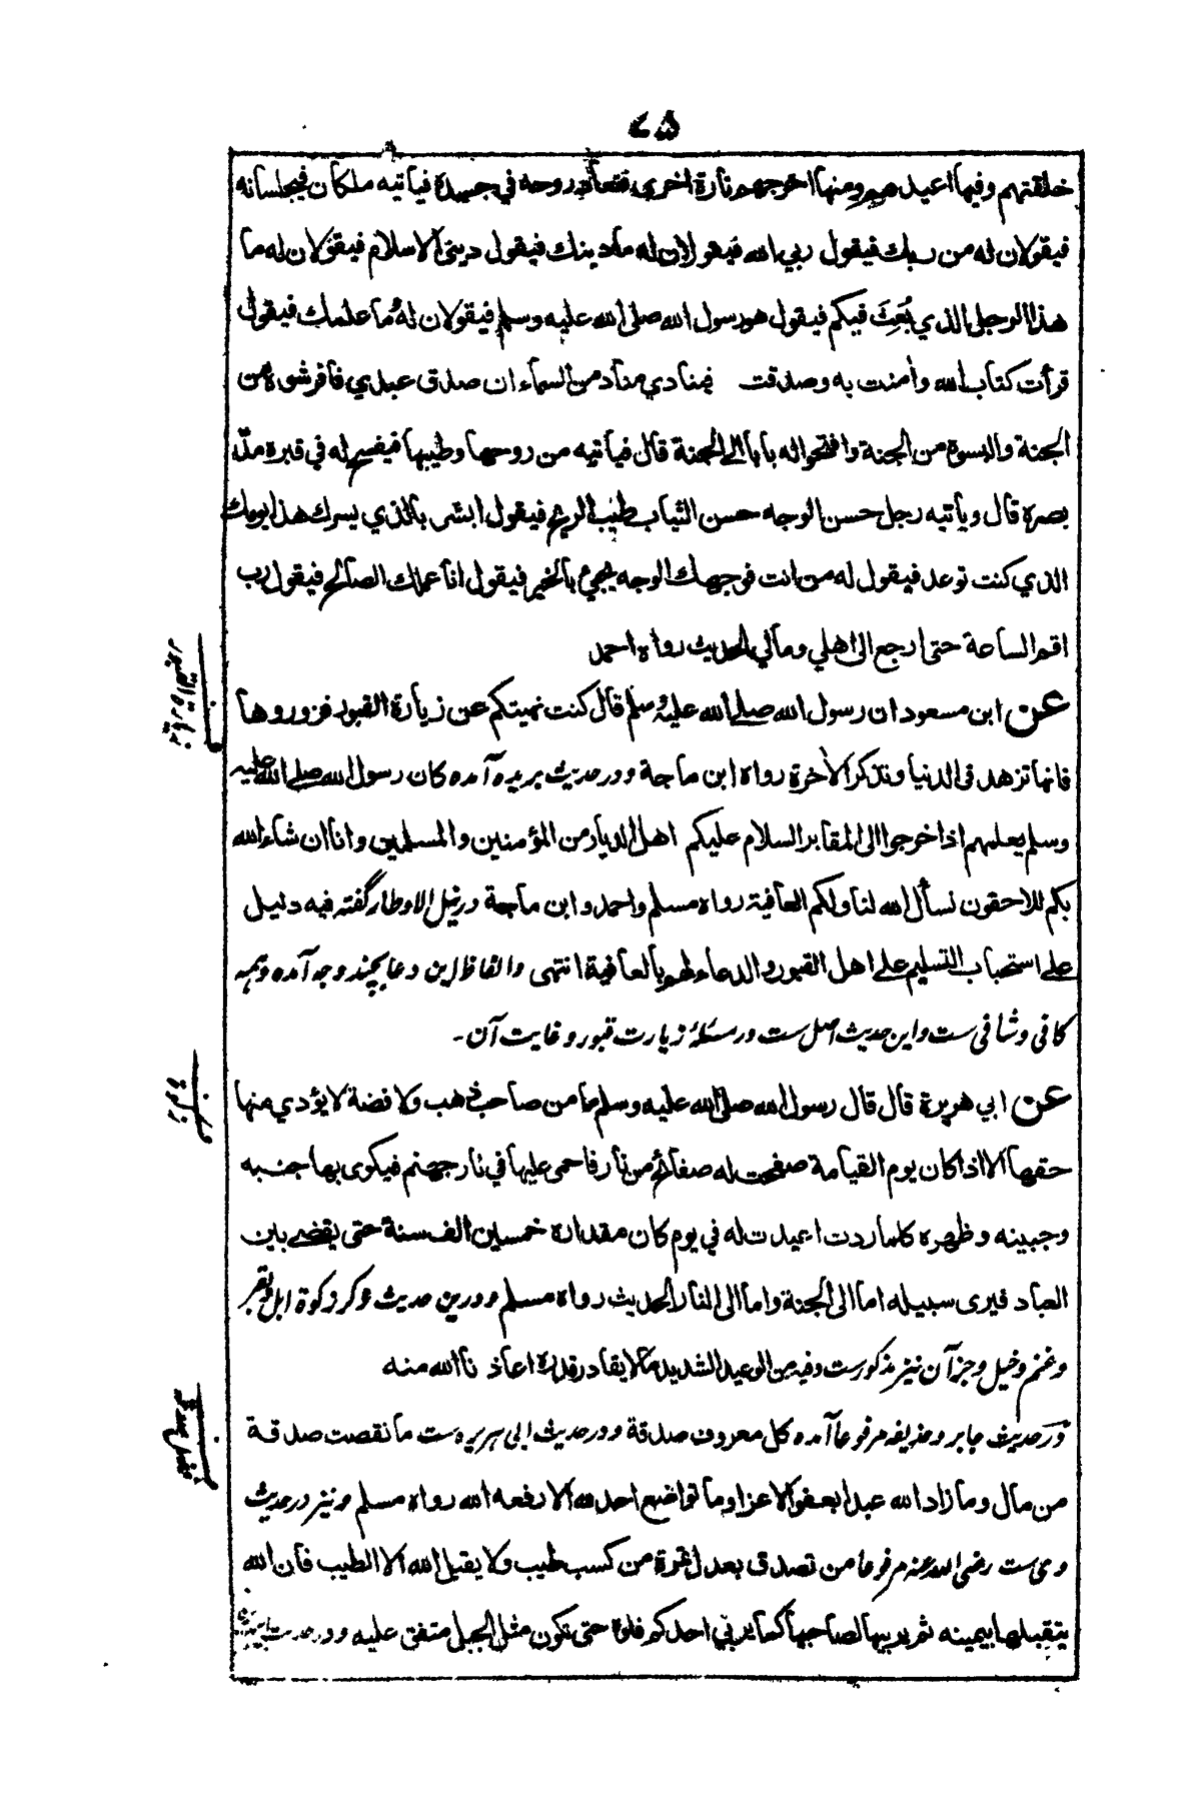 ٤٥
خلقتهم وفيها اعيدهم ومنها اخرجهم تارة اخرى فتعاد روحه في جسده فياتيه ملكان فيجلسانه
فيقولان له من ربك فيقول ربي الله فيقولان له ما دينك فيقول ديني الاسلام فيقولان له ما
هذا الرجل الذي بُعِثَ فيكم فيقول هو رسول الله صلى الله عليه وسلم فيقولان له ما علمك فيقول
قرأت كتاب الله وامنت به وصدقت فينادي مناد من السماء ان صدق عبدي فافرشوه من
الجنة والبسوه من الجنة وافتحوا له بابا الى الجنة قال فياتيه من روحها وطيبها فيفسح له في قبره مدّ
بصره قال وياتيه رجل حسن الوجه حسن الثياب طيب الريح فيقول ابشر بالذي يسرك هذا يومك
الذي كنت توعد فيقول له من انت فوجهك الوجه يجيء بالخير فيقول انا عملك الصالح فيقول رب
اقم الساعة حتى ارجع الى اهلي ومالي الحديث رواه احمد
زيارة القبور
عن ابن مسعود ان رسول الله صلى الله عليه وسلم قال كنت نهيتكم عن زيارة القبور فزوروها
فانها تزهد فى الدنيا وتذكر الأخرة رواه ابن ماجة ودر حديث بريده آمده كان رسول الله صلى الله عليه
وسلم يعلمهم اذا خرجوا الى المقابر السلام عليكم اهل الديار من المؤمنين والمسلمين وانا ان شاء الله
بكم للاحقون نسأل الله لنا ولكم العافية رواه مسلم واحمد وابن ماجة در نيل الاوطار گفته فيه دليل
على استحباب التسليم على اهل القبور والدعاء لهم بالعافية انتهى والفاظ اين دعا بچند وجه آمده وهمه
كافى وشافى ست واين حديث اصل ست در مسئلهٔ زيارت قبور وغايت آن۔
عن ابي هريرة قال قال رسول الله صلى الله عليه وسلم ما من صاحب ذهب ولا فضة لا يؤدي منها
حقها الا اذا كان يوم القيامة صفحت له صفائح من نار فاحمى عليها في نار جهنم فيكوى بها جنبه
وجبينه وظهره كلما ردت اعيدت له في يوم كان مقداره خمسين الف سنة حتى يقضى بين
العباد فيرى سبيله اما الى الجنة واما الى النار الحديث رواه مسلم ودرين حديث ذكر زكوة ابل وبقر
وغنم وخيل وجز آن نيز مذكورست وفيه من الوعيد الشديد ما لا يقادر قدره اعاذنا الله منه
فضل صدقه
در حديث جابر وحذيفه مرفوعا آمده كل معروف صدقة ودر حديث ابى هريره ست ما نقصت صدقة
من مال وما زاد الله عبدا بعفو الا عزا وما تواضع احد لله الا رفعه الله رواه مسلم ونيز در حديث
وى ست رضى الله عنه مرفوعا من تصدق بعدل تمرة من كسب طيب ولا يقبل الله الا الطيب فان الله
يتقبلها بيمينه ثم يربيها لصاحبها كما يربي احدكم فلوه حتى تكون مثل الجبل متفق عليه ودر حديث